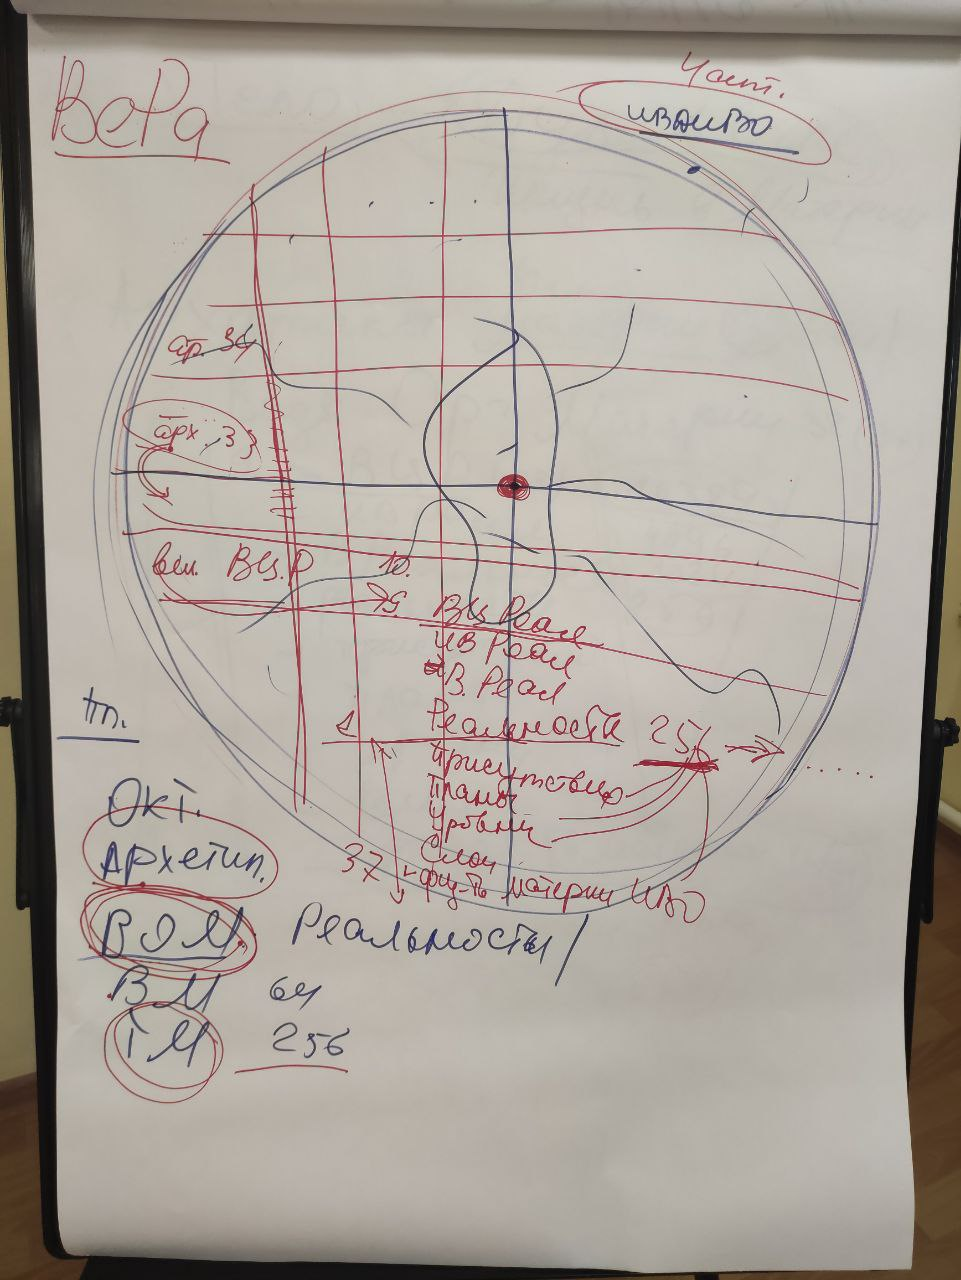 ВеРа
Част.
ИВДИВО
ар. 34
арх. 33
вш. ВЦ.Р
10.
5. ВЦ Реал
ИВ Реал
В. Реал
1 Реальности 256
Присутствие
Планы
Уровни
Слои
37
материи ИВО
тп.
Окт.
Архетип.
ВОМ. Реальность/
ВМ 64
ТМ 256